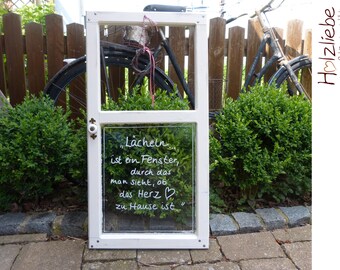 „Lächeln...
ist ein Fenster,
durch das
man sieht, ob
das Herz
zu Hause ist."
Holzliebe